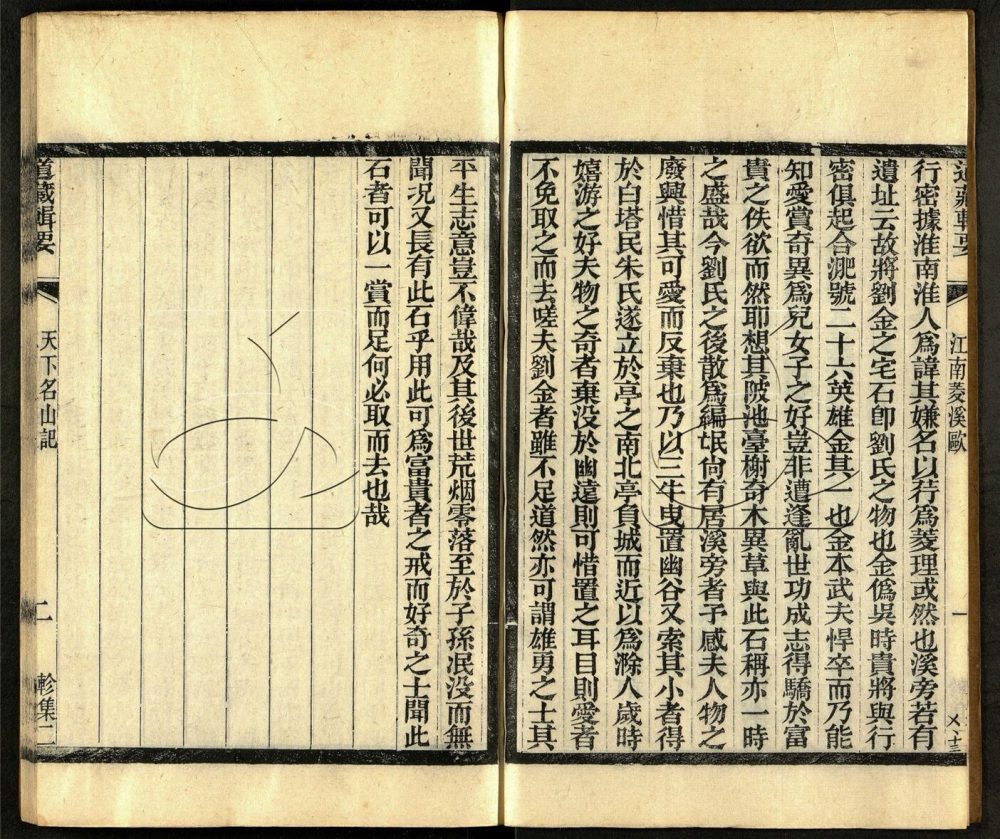 道藏輯要
江南菱溪歐
一
行密據淮南淮人為諱其嫌名以荇為菱理或然也溪旁若有
遺址云故將劉金之宅石卽劉氏之物也金僞吳時貴將與行
密俱起合淝號二十六英雄金其一也金本武夫悍卒而乃能
知愛賞奇異爲兒女子之好豈非遭逢亂世功成志得驕於富
貴之佚欲而然耶想其陂池臺榭奇木異草與此石稱亦一時
之盛哉今劉氏之後散爲編氓尙有居溪旁者予感夫人物之
廢興惜其可愛而反棄也乃以三牛曳置幽谷又索其小者得
於白塔民朱氏遂立於亭之南北亭負城而近以爲滁人歲時
嬉游之好夫物之奇者棄没於幽遠則可惜置之耳目則愛者
不免取之而去嗟夫劉金者雖不足道然亦可謂雄勇之士其
平生志意豈不偉哉及其後世荒烟零落至於子孫泯没而無
聞況又長有此石乎用此可爲富貴者之戒而好奇之士聞此
石者可以一賞而足何必取而去也哉
道藏輯要
天下名山記
二
軫集二